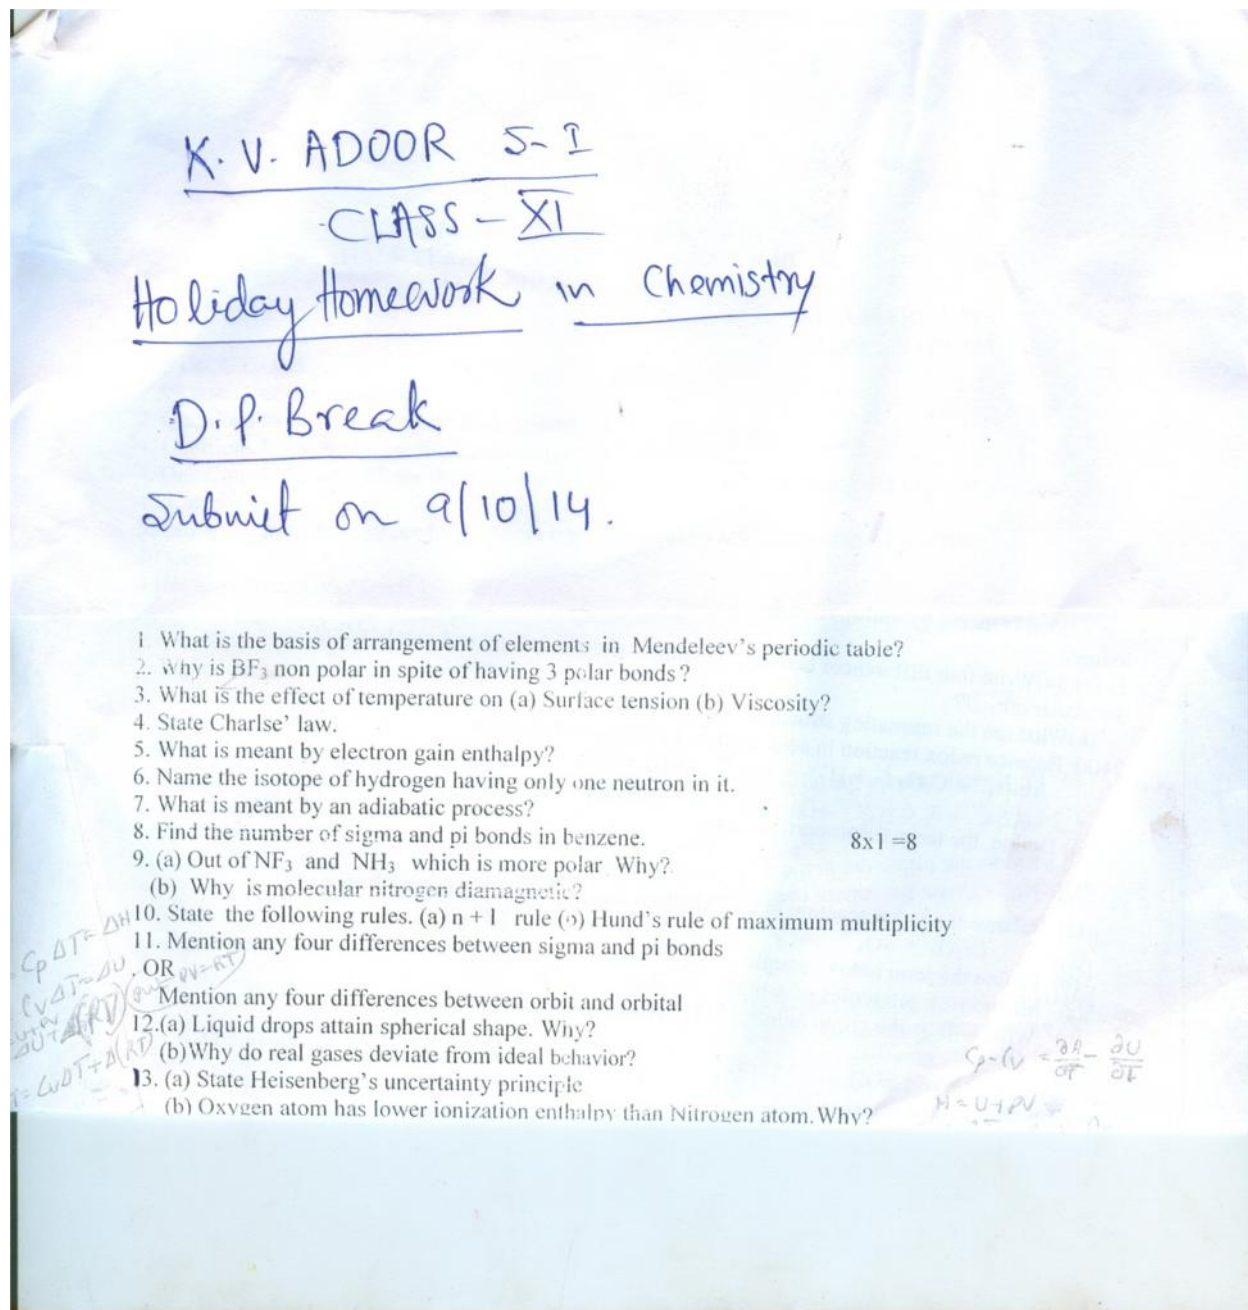 K. V. ADOOR S-I
CLASS - XI
Holiday Homework in Chemistry
D.P. Break
Submit on 9/10/14.
1 What is the basis of arrangement of elements in Mendeleev's periodic table?
2. Why is BF3 non polar in spite of having 3 polar bonds?
3. What is the effect of temperature on (a) Surface tension (b) Viscosity?
4. State Charlse' law.
5. What is meant by electron gain enthalpy?
6. Name the isotope of hydrogen having only one neutron in it.
7. What is meant by an adiabatic process?
8. Find the number of sigma and pi bonds in benzene. 8x1 =8
9. (a) Out of NF3 and NH3 which is more polar Why?
(b) Why is molecular nitrogen diamagnetic?
10. State the following rules. (a) n + l rule (b) Hund's rule of maximum multiplicity
11. Mention any four differences between sigma and pi bonds
. OR
Mention any four differences between orbit and orbital
12.(a) Liquid drops attain spherical shape. Why?
(b)Why do real gases deviate from ideal behavior?
13. (a) State Heisenberg's uncertainty principle
(b) Oxygen atom has lower ionization enthalpy than Nitrogen atom. Why?
Cp ΔT = ΔH
Cv ΔT = ΔU
PV=RT
H = U+PV